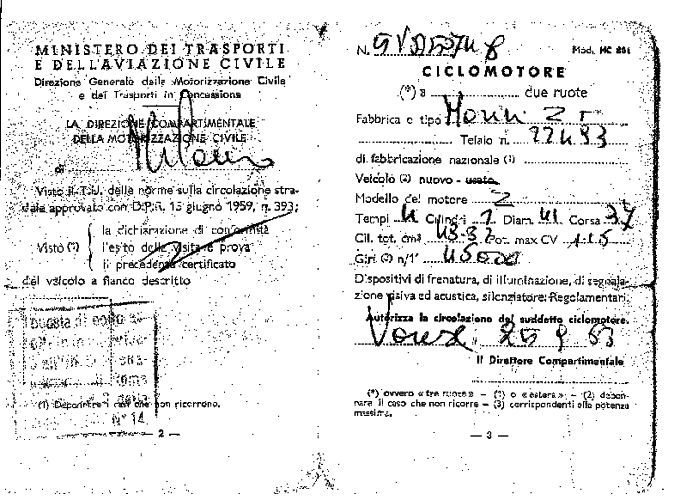 MINISTERO DEI TRASPORTI
E DELL'AVIAZIONE CIVILE
Direzione Generale della Motorizzazione Civile
e dei Trasporti in Concessione
LA DIREZIONE COMPARTIMENTALE
DELLA MOTORIZZAZIONE CIVILE
di Milano
Visto il T.U. delle norme sulla circolazione stra-
dale approvato con D.P.R. 15 giugno 1959, n. 393;
Visto (1)
la dichiarazione di conformità
l'esito della visita e prova
il precedente certificato
del veicolo a fianco descritto
(1) Depennare i casi che non ricorrono.
N° 14
— 2 —
N. Mod. MC 801
CICLOMOTORE
(*) a due ruote
Fabbrica e tipo
Telaio n. 22493
di fabbricazione nazionale (1)
Veicolo (2) nuovo - usato
Modello del motore Z
Tempi 4 Cilindri 1 Diam. 41 Corsa 37
Cil. tot. cm³ Pot. max CV 1.5
Giri (3) n/1' 4500
Dispositivi di frenatura, di illuminazione, di segnala-
zione visiva ed acustica, silenziatore: Regolamentari.
Autorizza la circolazione del suddetto ciclomotore.
25 9 63
Il Direttore Compartimentale
(*) ovvero «tre ruote» - (1) o «estera» - (2) depen-
nare il caso che non ricorre - (3) corrispondenti alla potenza
massima.
— 3 —